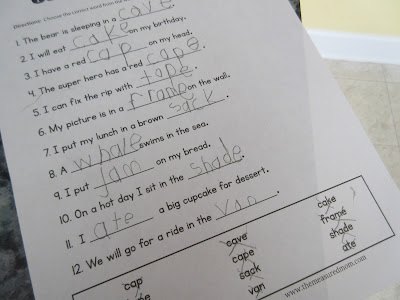 Directions: Choose the correct word from the
1. The bear is sleeping in a cave.
2. I will eat cake on my birthday.
3. I have a red cap on my head.
4. The super hero has a red cape.
5. I can fix the rip with tape.
6. My picture is in a frame on the wall.
7. I put my lunch in a brown sack.
8. A whale swims in the sea.
9. I put jam on my bread.
10. On a hot day I sit in the shade.
11. I ate a big cupcake for dessert.
12. We will go for a ride in the van.
cap cave cake
cape frame
sack shade
van ate
www.themeasuredmom.com